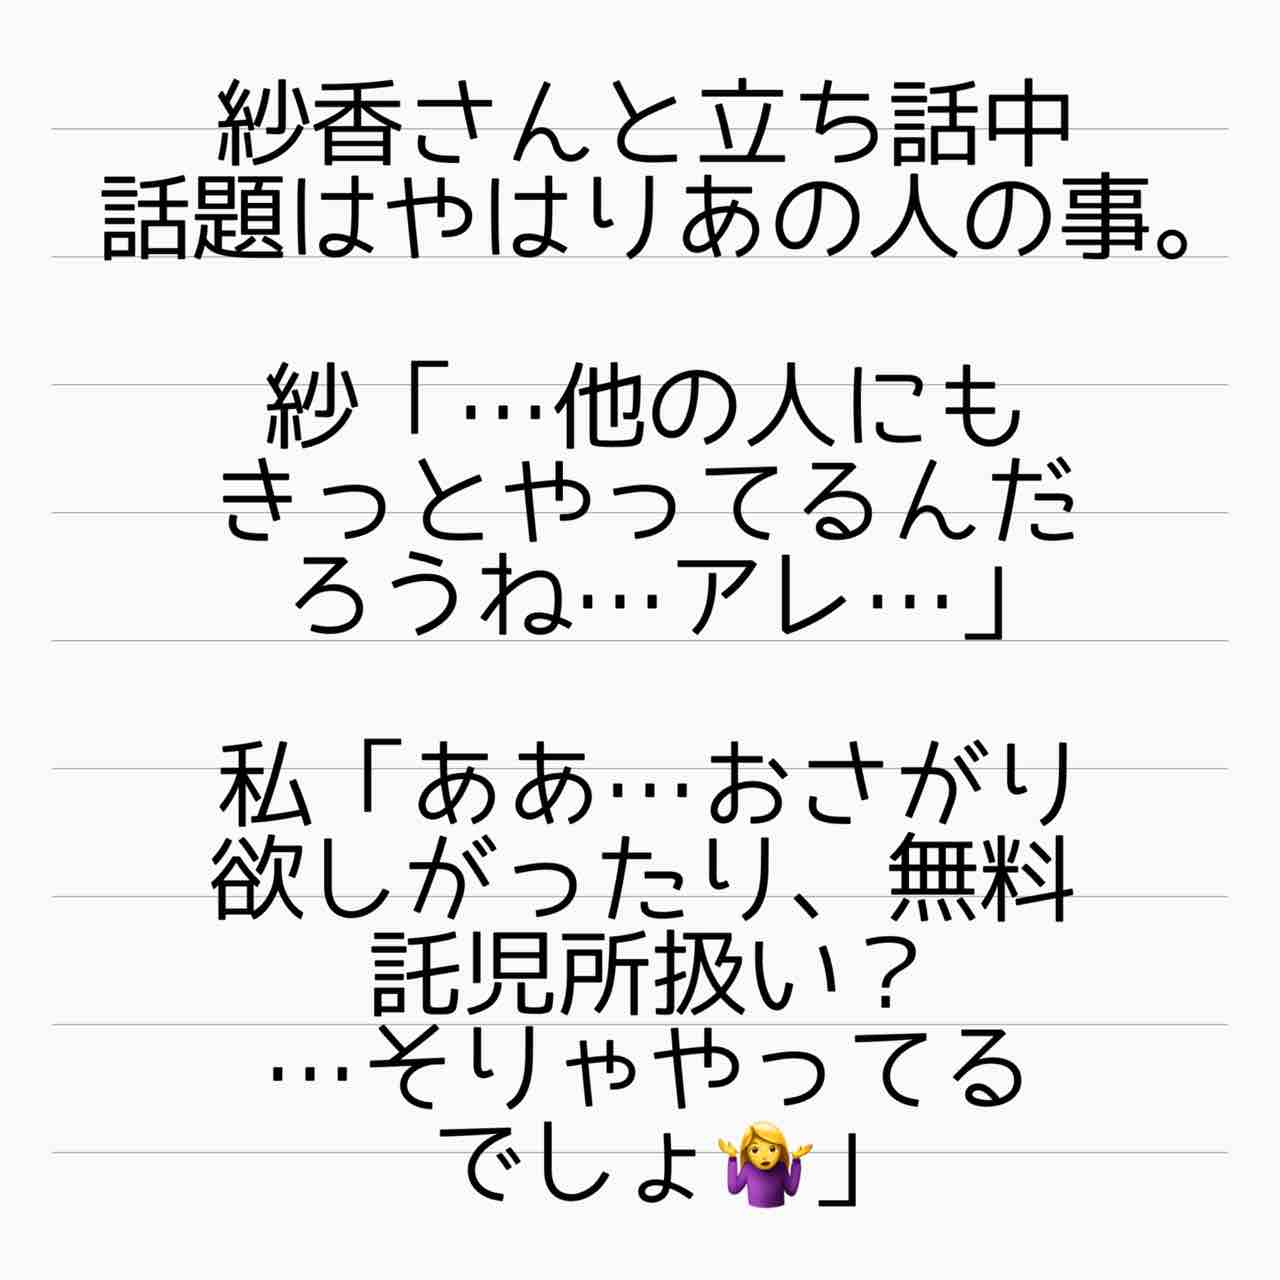 紗香さんと立ち話中
話題はやはりあの人の事。
紗「…他の人にも
きっとやってるんだ
ろうね…アレ…」
私「ああ…おさがり
欲しがったり、無料
託児所扱い？
…そりゃやってる
でしょ🤷‍♀️」